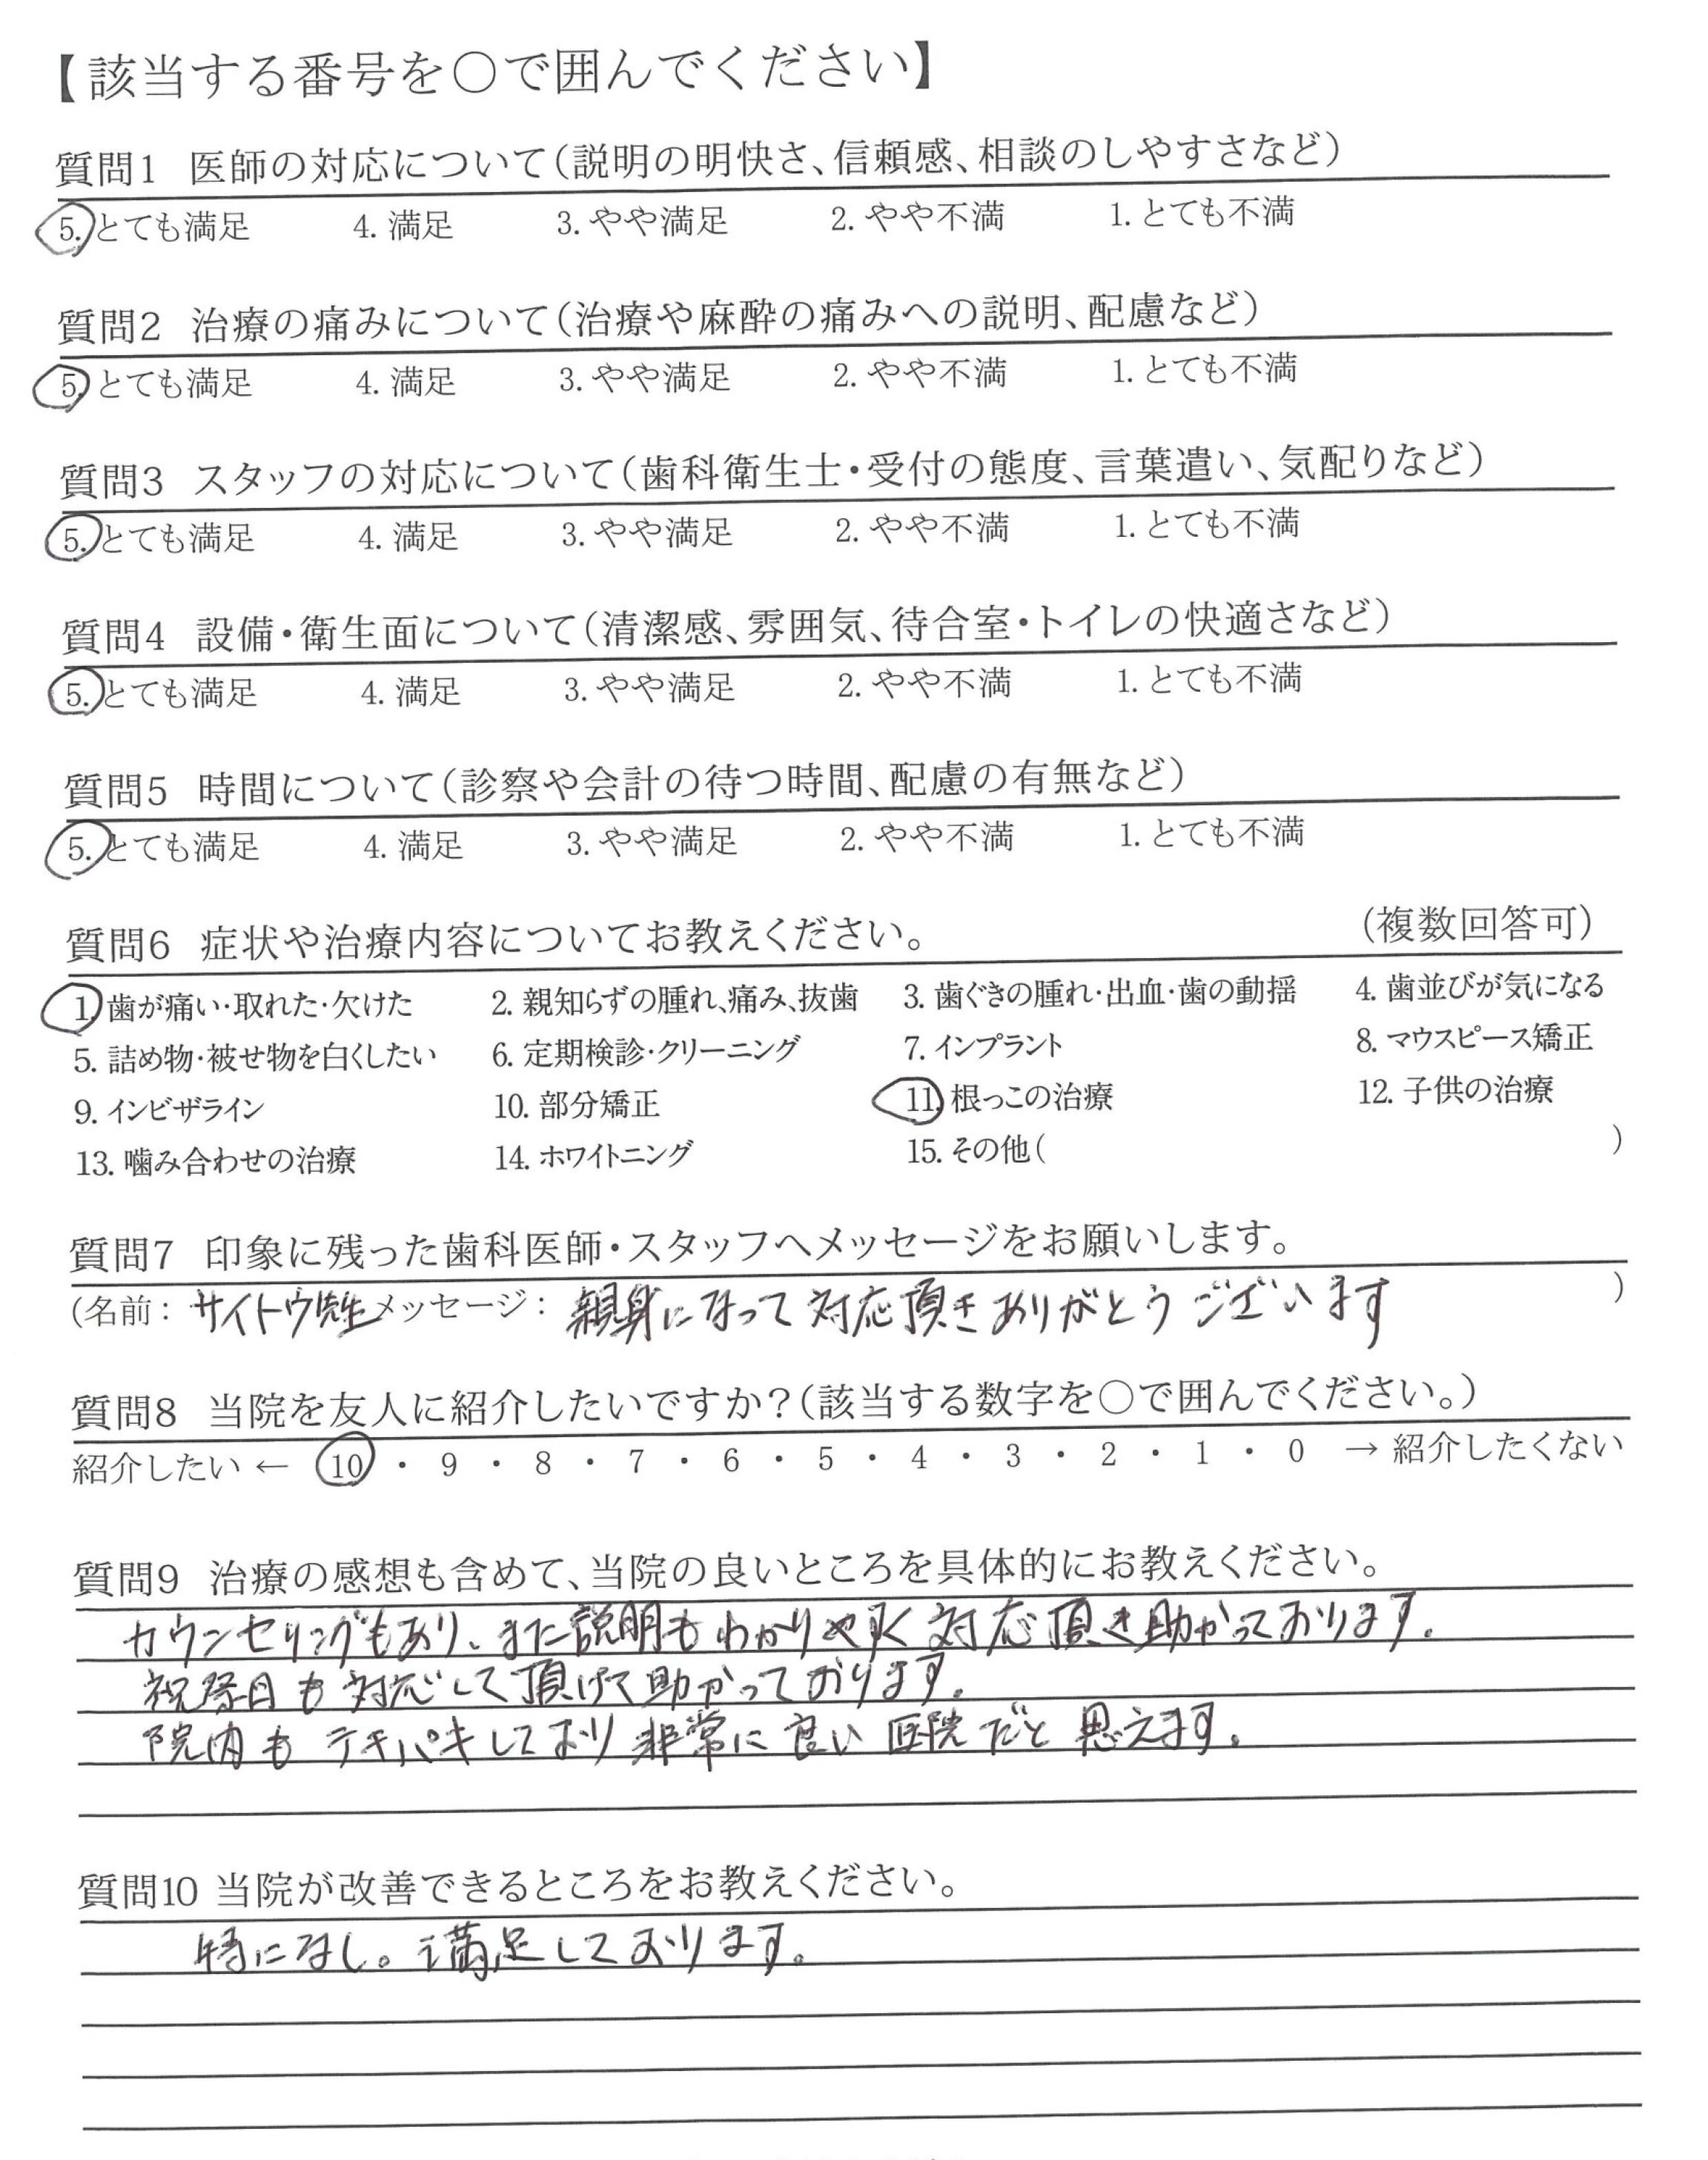 【該当する番号を○で囲んでください】
質問1 医師の対応について(説明の明快さ、信頼感、相談のしやすさなど)
5. とても満足 4. 満足 3. やや満足 2. やや不満 1. とても不満
質問2 治療の痛みについて(治療や麻酔の痛みへの説明、配慮など)
5. とても満足 4. 満足 3. やや満足 2. やや不満 1. とても不満
質問3 スタッフの対応について(歯科衛生士・受付の態度、言葉遣い、気配りなど)
5. とても満足 4. 満足 3. やや満足 2. やや不満 1. とても不満
質問4 設備・衛生面について(清潔感、雰囲気、待合室・トイレの快適さなど)
5. とても満足 4. 満足 3. やや満足 2. やや不満 1. とても不満
質問5 時間について(診察や会計の待つ時間、配慮の有無など)
5. とても満足 4. 満足 3. やや満足 2. やや不満 1. とても不満
質問6 症状や治療内容についてお教えください。 (複数回答可)
1. 歯が痛い・取れた・欠けた 2. 親知らずの腫れ、痛み、抜歯 3. 歯ぐきの腫れ・出血・歯の動揺 4. 歯並びが気になる
5. 詰め物・被せ物を白くしたい 6. 定期検診・クリーニング 7. インプラント 8. マウスピース矯正
9. インビザライン 10. 部分矯正 11. 根っこの治療 12. 子供の治療
13. 噛み合わせの治療 14. ホワイトニング 15. その他( )
質問7 印象に残った歯科医師・スタッフへメッセージをお願いします。
(名前: サイトウ先生 メッセージ: 親身になって対応頂きありがとうございます )
質問8 当院を友人に紹介したいですか?(該当する数字を○で囲んでください。)
紹介したい ← 10 ・ 9 ・ 8 ・ 7 ・ 6 ・ 5 ・ 4 ・ 3 ・ 2 ・ 1 ・ 0 → 紹介したくない
質問9 治療の感想も含めて、当院の良いところを具体的にお教えください。
カウンセリングもあり、また説明もわかりやすく対応頂き助かっております。
祝祭日も対応して頂けて助かっております。
院内もテキパキしており非常に良い医院だと思えます。
質問10 当院が改善できるところをお教えください。
特になし。満足しております。